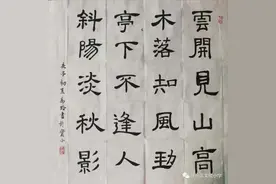 雲開見山高
木落知風勁
亭下不逢人
斜陽淡秋影